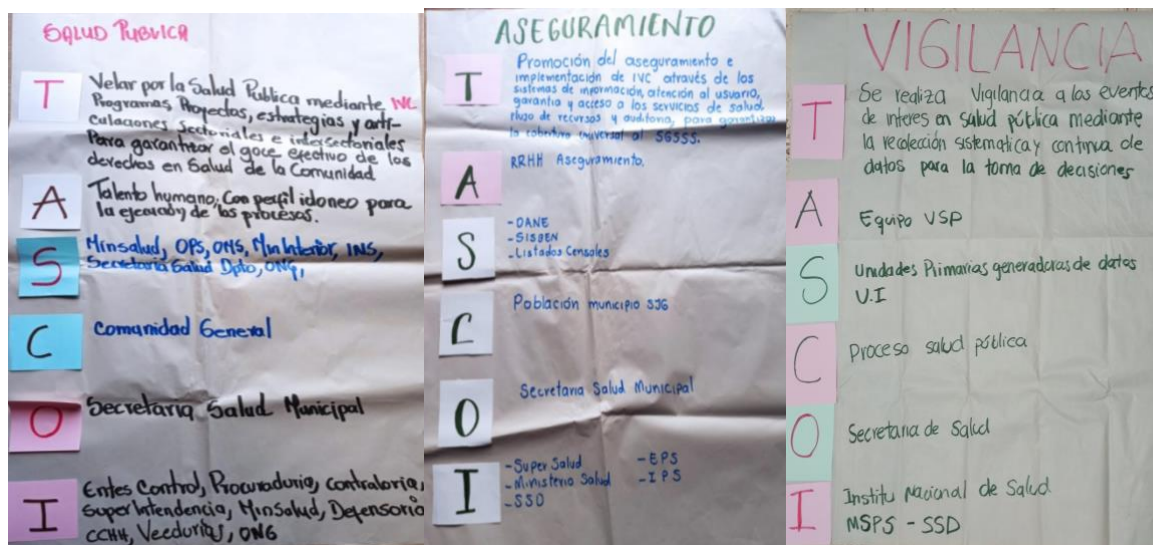 SALUD PUBLICA
T
Velar por la Salud Publica mediante, IVC
Programas Proyectos, estrategias y arti-
culaciones sectoriales e intersectoriales
Para garantizar el goce efectivo de los
derechos en Salud de la Comunidad
A
Talento humano; Con perfil idoneo para
la ejecución de los procesos.
S
Minsalud, OPS, OMS, Min Interior, INS,
Secretaria Salud Dpto, ONG,
C
Comunidad General
O
Secretaria Salud Municipal
I
Entes Control, Procuraduria, contraloria,
Super Intendencia, Minsalud, Defensoria
CCHH, Veedurias, ONG
ASEGURAMIENTO
T
Promoción del aseguramiento e
implementación de IVC através de los
sistemas de información, atención al usuario,
garantia y acceso a los servicios de salud
flujo de recursos y auditoria, para garantizar
la cobertura universal al SGSSS.
A
RRHH Aseguramiento.
S
-DANE
-SISBEN
-Listados Censales
C
Población municipio SJG
O
Secretaria Salud Municipal
I
-Super Salud -EPS
-Ministerio Salud -IPS
-SSD
VIGILANCIA
T
Se realiza Vigilancia a los eventos
de interes en salud pública mediante
la recolección sistematica y continua de
datos para la toma de decisiones
A
Equipo VSP
S
Unidades Primarias generadoras de datos
U.I
C
Proceso salud pública
O
Secretaria de Salud
I
Institu Nacional de Salud
MSPS - SSD